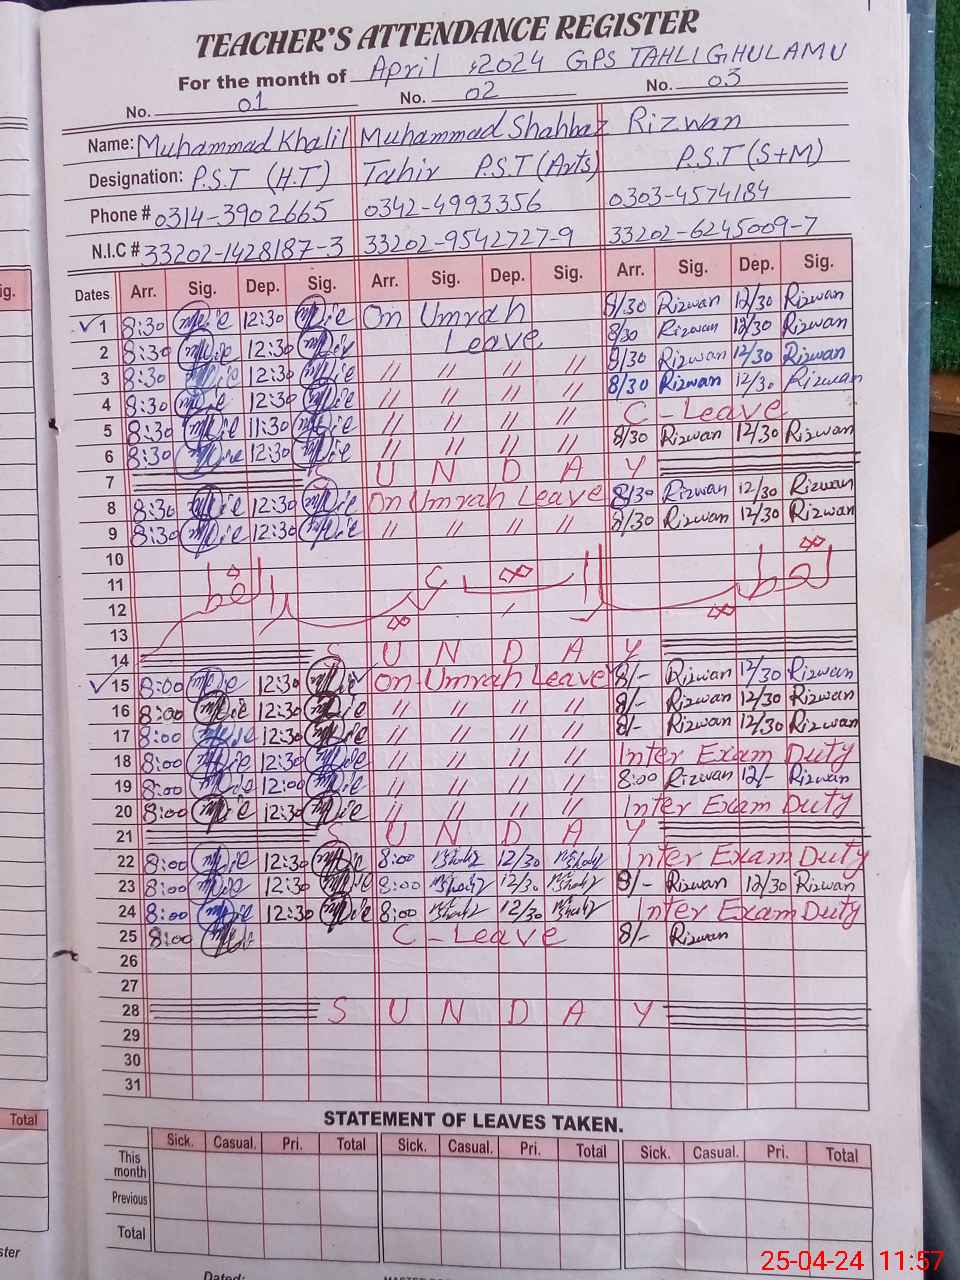 TEACHER'S ATTENDANCE REGISTER
For the month of April, 2024 GPS TAHLI GHULAMU
No. 01 No. 02 No. 03
Name: Muhammad Khalil Muhammad Shahbaz Rizwan
Designation: P.S.T (H.T) Tahir P.S.T (Arts) P.S.T (S+M)
Phone # 0314-3902665 0342-4993356 0303-4574184
N.I.C # 33202-1428187-3 33202-9542727-9 33202-6245009-7
ig. Dates Arr. Sig. Dep. Sig. Arr. Sig. Dep. Sig. Arr. Sig. Dep. Sig.
1 8:30 12:30 On Umrah 8/30 Rizwan 12/30 Rizwan
2 8:30 12:30 Leave 8/30 Rizwan 12/30 Rizwan
3 8:30 12:30 // // // // 8/30 Rizwan 12/30 Rizwan
4 8:30 12:30 // // // // 8/30 Rizwan 12/30 Rizwan
5 8:30 11:30 // // // // C-Leave
6 8:30 12:30 // // // // 8/30 Rizwan 12/30 Rizwan
7 S U N D A Y
8 8:30 12:30 On Umrah Leave 8/30 Rizwan 12/30 Rizwan
9 8:30 12:30 // // // // 8/30 Rizwan 12/30 Rizwan
10
11
12
13
14 S U N D A Y
15 8:00 12:30 On Umrah Leave 8/- Rizwan 12/30 Rizwan
16 8:00 12:30 // // // // 8/- Rizwan 12/30 Rizwan
17 8:00 12:30 // // // // 8/- Rizwan 12/30 Rizwan
18 8:00 12:30 // // // // Inter Exam Duty
19 8:00 12:00 // // // // 8:00 Rizwan 12/- Rizwan
20 8:00 12:30 // // // // Inter Exam Duty
21 S U N D A Y
22 8:00 12:30 8:00 12/30 Inter Exam Duty
23 8:00 12:30 8:00 12/30 8/- Rizwan 12/30 Rizwan
24 8:00 12:30 8:00 12/30 Inter Exam Duty
25 8:00 C-Leave 8/- Rizwan
26
27
28 S U N D A Y
29
30
31
Total STATEMENT OF LEAVES TAKEN.
Sick. Casual. Pri. Total Sick. Casual. Pri. Total Sick. Casual. Pri. Total
This month
Previous
Total
ster
Dated:
25-04-24 11:57